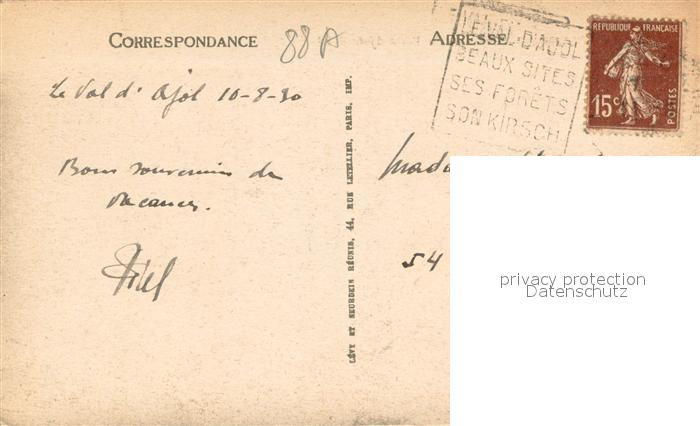 CORRESPONDANCE
88A
ADRESSE
LE VAL-D'AJOL
BEAUX SITES
SES FORÊTS
SON KIRSCH
RÉPUBLIQUE FRANÇAISE
15c
POSTES
Le Val d'Ajol 10-8-30
Bons souvenirs de
vacances.
54
LÉVY ET NEURDEIN RÉUNIS, 44, RUE LETELLIER, PARIS, IMP.
privacy protection
Datenschutz